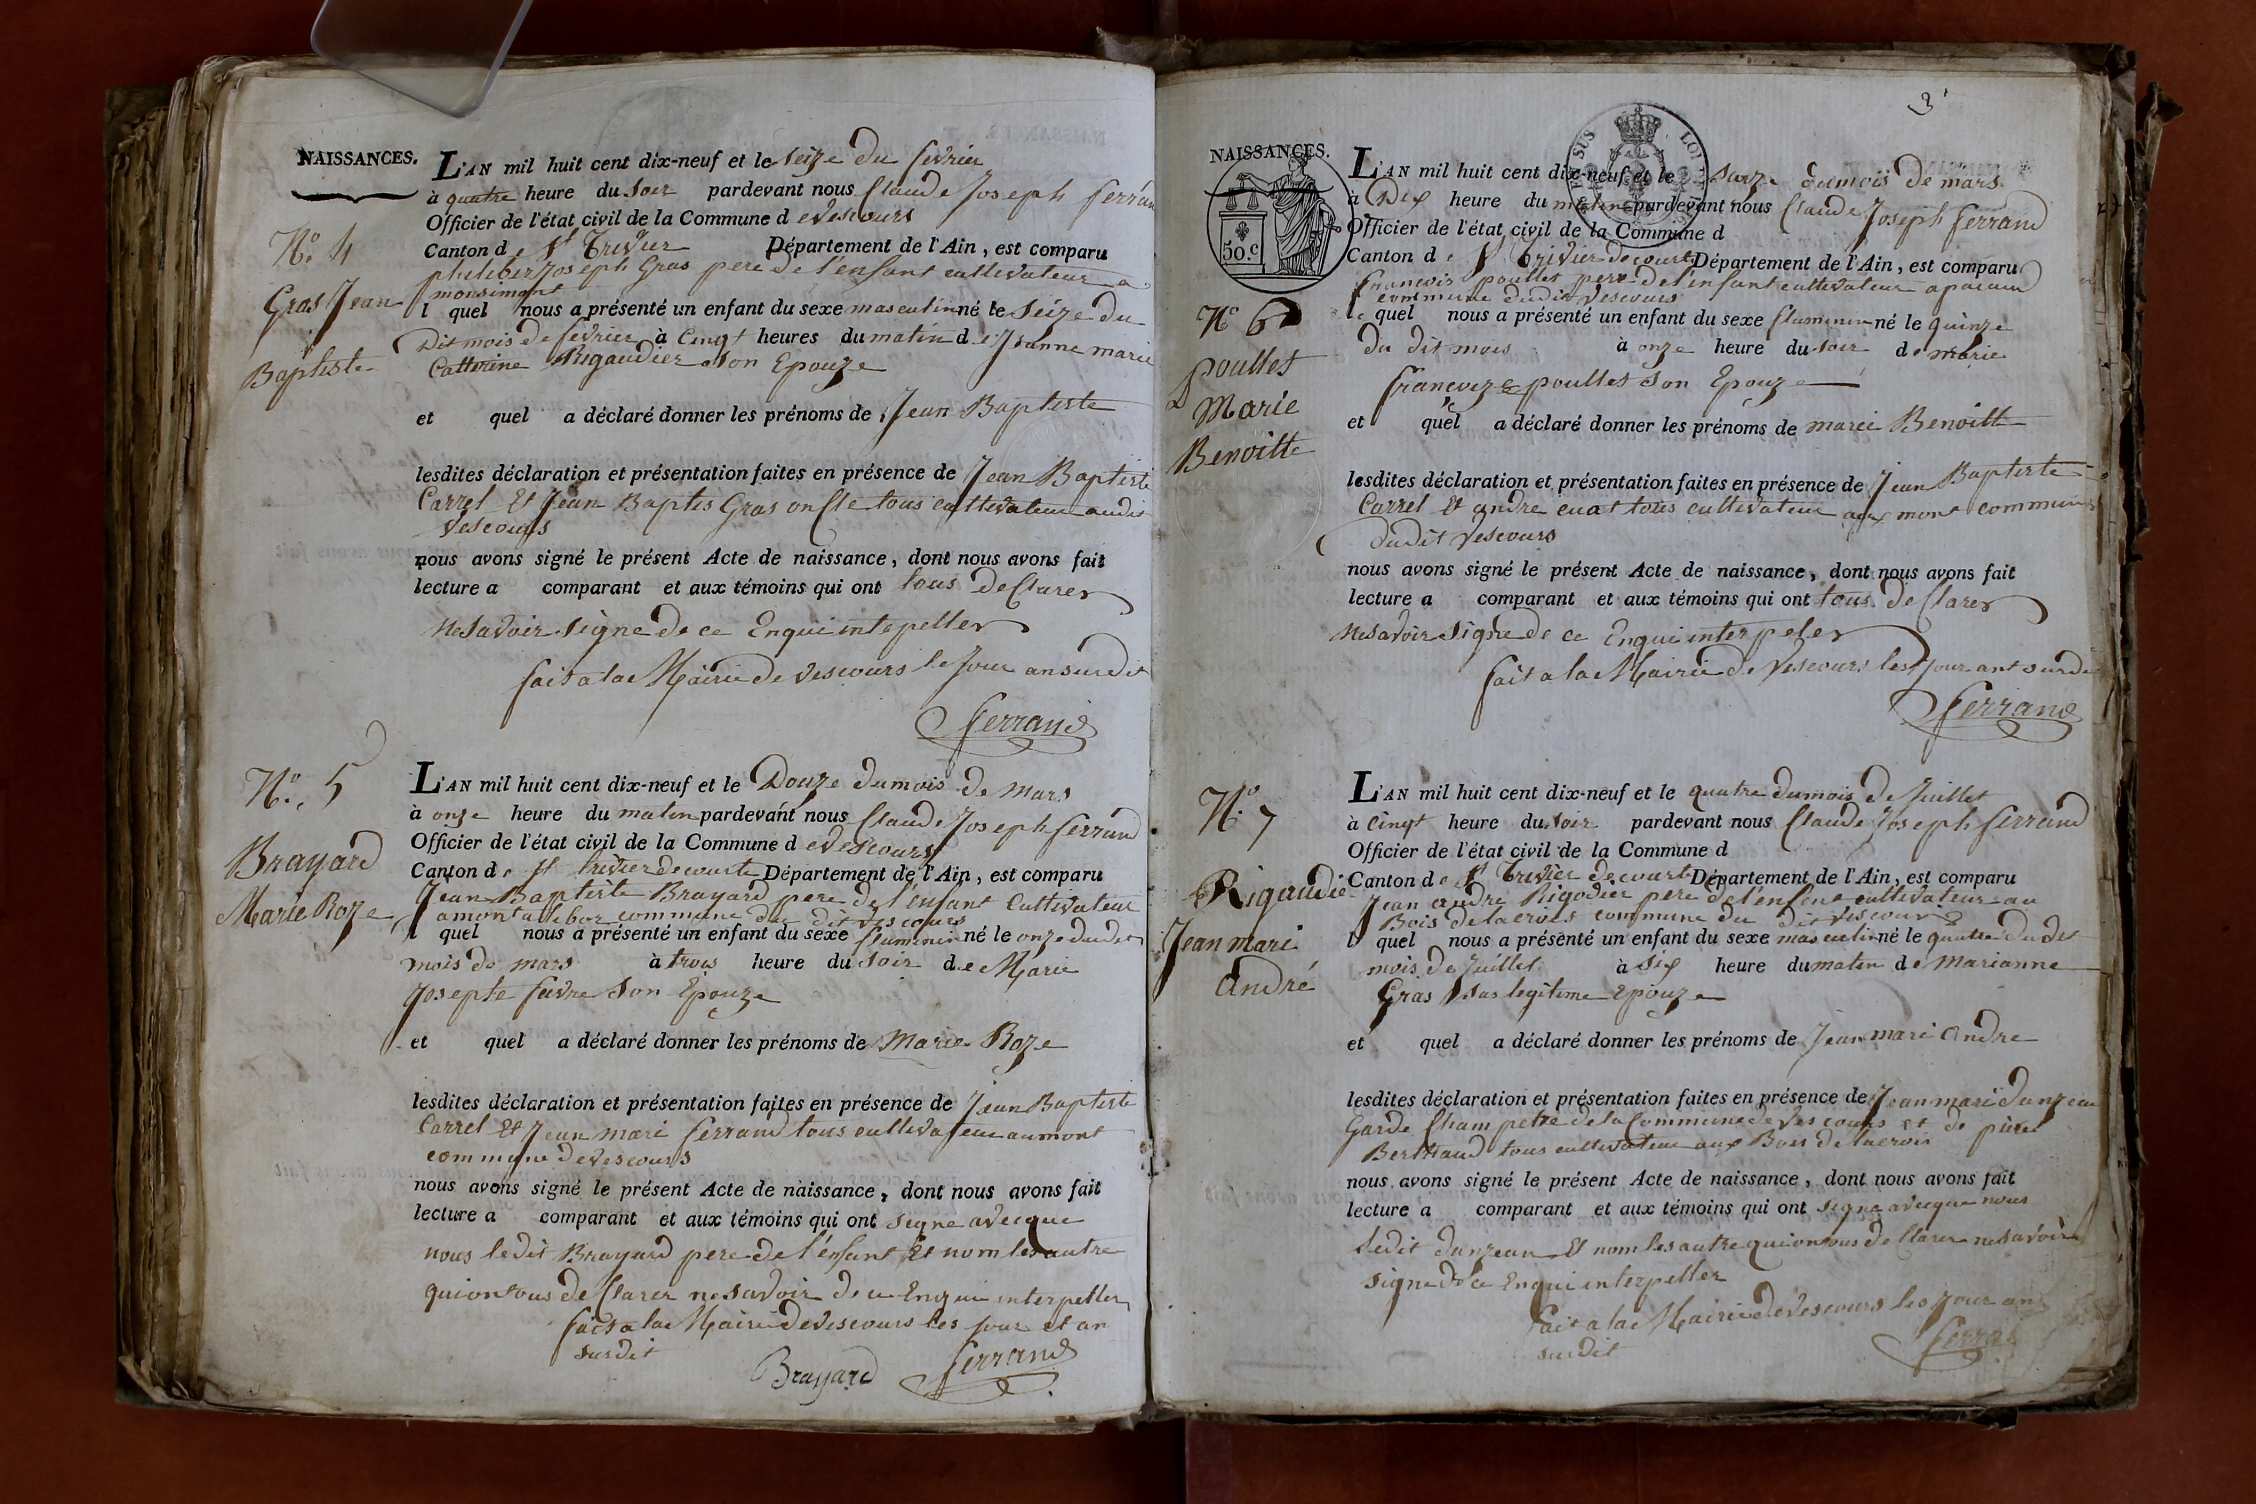 NAISSANCES.
L'AN mil huit cent dix-neuf et le seize du fevrier
à quatre heure du soir pardevant nous Claude Joseph ferrand
Officier de l'état civil de la Commune d evescours
Canton d e St Trivier Département de l'Ain, est comparu
phileber Joseph Gras pere de l'enfant cultivateur a
monsimont
l quel nous a présenté un enfant du sexe masculin né le seize du
Dit mois de fevrier à Cinqt heures du matin d e Jeanne marie
Catterine Rigaudier son Epouze
et quel a déclaré donner les prénoms de Jean Baptiste
lesdites déclaration et présentation faites en présence de Jean Baptiste
Carrel Et Jean Baptis Gras oncle tous cultivateur audit
vescours
nous avons signé le présent Acte de naissance, dont nous avons fait
lecture a comparant et aux témoins qui ont tous de Clarer
ne savoir signe de ce Enqui intepeller
fait a la Mairie de vescours le Jour an surdit
ferrand
No. 4
Gras Jean
Baptiste
No. 5
Brayard
Marie Roze
L'AN mil huit cent dix-neuf et le Douze du mois de mars
à onze heure du matin pardevant nous Claude Joseph ferrand
Officier de l'état civil de la Commune d evescours
Canton d e St trivier decourte Département de l'Ain, est comparu
Jean Baptiste Brayard pere de l'enfant Cultivateur
commune du dit vescours
l quel nous a présenté un enfant du sexe fluminin né le onze dudit
mois de mars à trois heure du soir d e Marie
Josepte faivre son Epouze
et quel a déclaré donner les prénoms de Marie Roze
lesdites déclaration et présentation faites en présence de Jean Baptiste
Carrel Et Jean mari ferrand tous cultivateur aumont
commune de vescours
nous avons signé le présent Acte de naissance, dont nous avons fait
lecture a comparant et aux témoins qui ont signe avecque
nous ledit Brayard pere de l'enfant Et nom les autre
qui on tous de Clarer ne savoir de ce Enqui interpeller
fait a la Mairie de vescours les jour et an
surdit
Brayard ferrand
3
NAISSANCES.
50.c
SUS LOI
L'AN mil huit cent dix-neuf et le saize du mois de mars
à Dix heure du matin pardevant nous Claude Joseph ferrand
Officier de l'état civil de la Commune d
Canton d e St Trivier decourte Département de l'Ain, est comparu
francois poullet pere de l'enfant cultivateur
commune dudit vescours
le quel nous a présenté un enfant du sexe fluminin né le quinze
du dit mois à onze heure du soir d e marie
francoize poullet son Epouze
et quel a déclaré donner les prénoms de marie Benoitte
lesdites déclaration et présentation faites en présence de Jean Baptiste
Carrel Et andre cuat tous cultivateur aux mont commune
dudit vescours
nous avons signé le présent Acte de naissance, dont nous avons fait
lecture a comparant et aux témoins qui ont tous de Clarer
ne savoir signe de ce Enqui interpeler
fait a la Mairie de vescours les Jour ant surdit
ferrand
No 6
poullet
Marie
Benoitte
No. 7
Rigaudie
Jean mari
André
L'AN mil huit cent dix-neuf et le quatre du mois de Juillet
à Cinqt heure du soir pardevant nous Claude Joseph ferrand
Officier de l'état civil de la Commune d
Canton d e St Trivier decourte Département de l'Ain, est comparu
Jean andre Rigodier pere de l'enfent cultivateur au
Bois de la crois commune du dit vescours
l quel nous a présenté un enfant du sexe masculin né le quatre du dit
mois de Juillet à six heure du matin d e Marianne
Gras sas legitime Epouze
et quel a déclaré donner les prénoms de Jean mari andre
lesdites déclaration et présentation faites en présence de Jean mari danjean
Garde Champetre de la Commune de vescours et de piere
Bertraud tous cultivateur aux Bois de lacrois
nous avons signé le présent Acte de naissance, dont nous avons fait
lecture a comparant et aux témoins qui ont signe avecque nous
ledit danjean Et nom les autre qui on tous de Clarer ne savoir
signe de ce Enqui interpeller
fait a la Mairie de vescours les jour an
surdit
ferrand